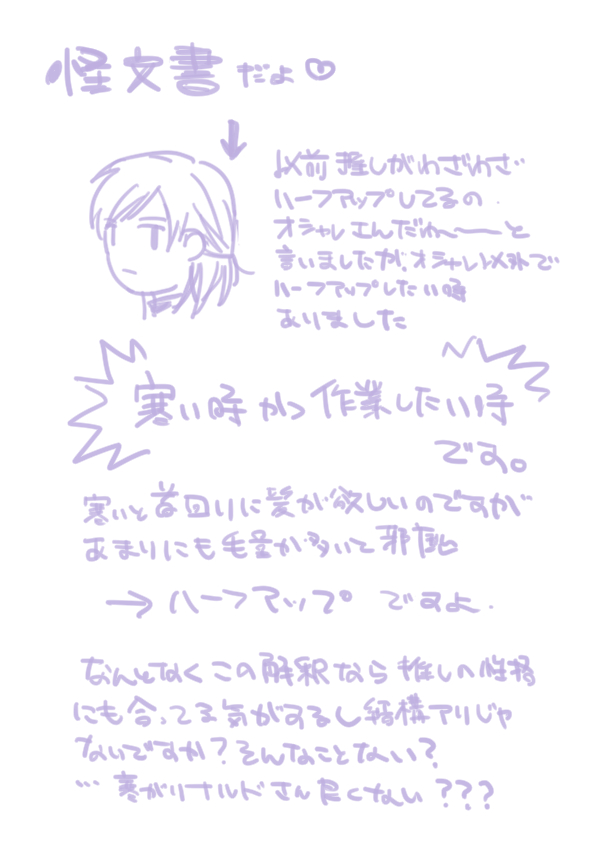 怪文書だよ♡
以前推しがわざわざ
ハーフアップしてるの
オシャレさんだわ〜――と
言いましたが、オシャレ以外で
ハーフアップしたい時
ありました
寒い時かつ作業したい時
です。
寒いと首回りに髪が欲しいのですが
あまりにも毛量が多いて邪魔
→ハーフアップ ですよ.
なんとなくこの解釈なら推しの性格
にも合ってる気がするし結構アリじゃ
ないですか？そんなことない？
…寒がリナルドさん良くない？？？